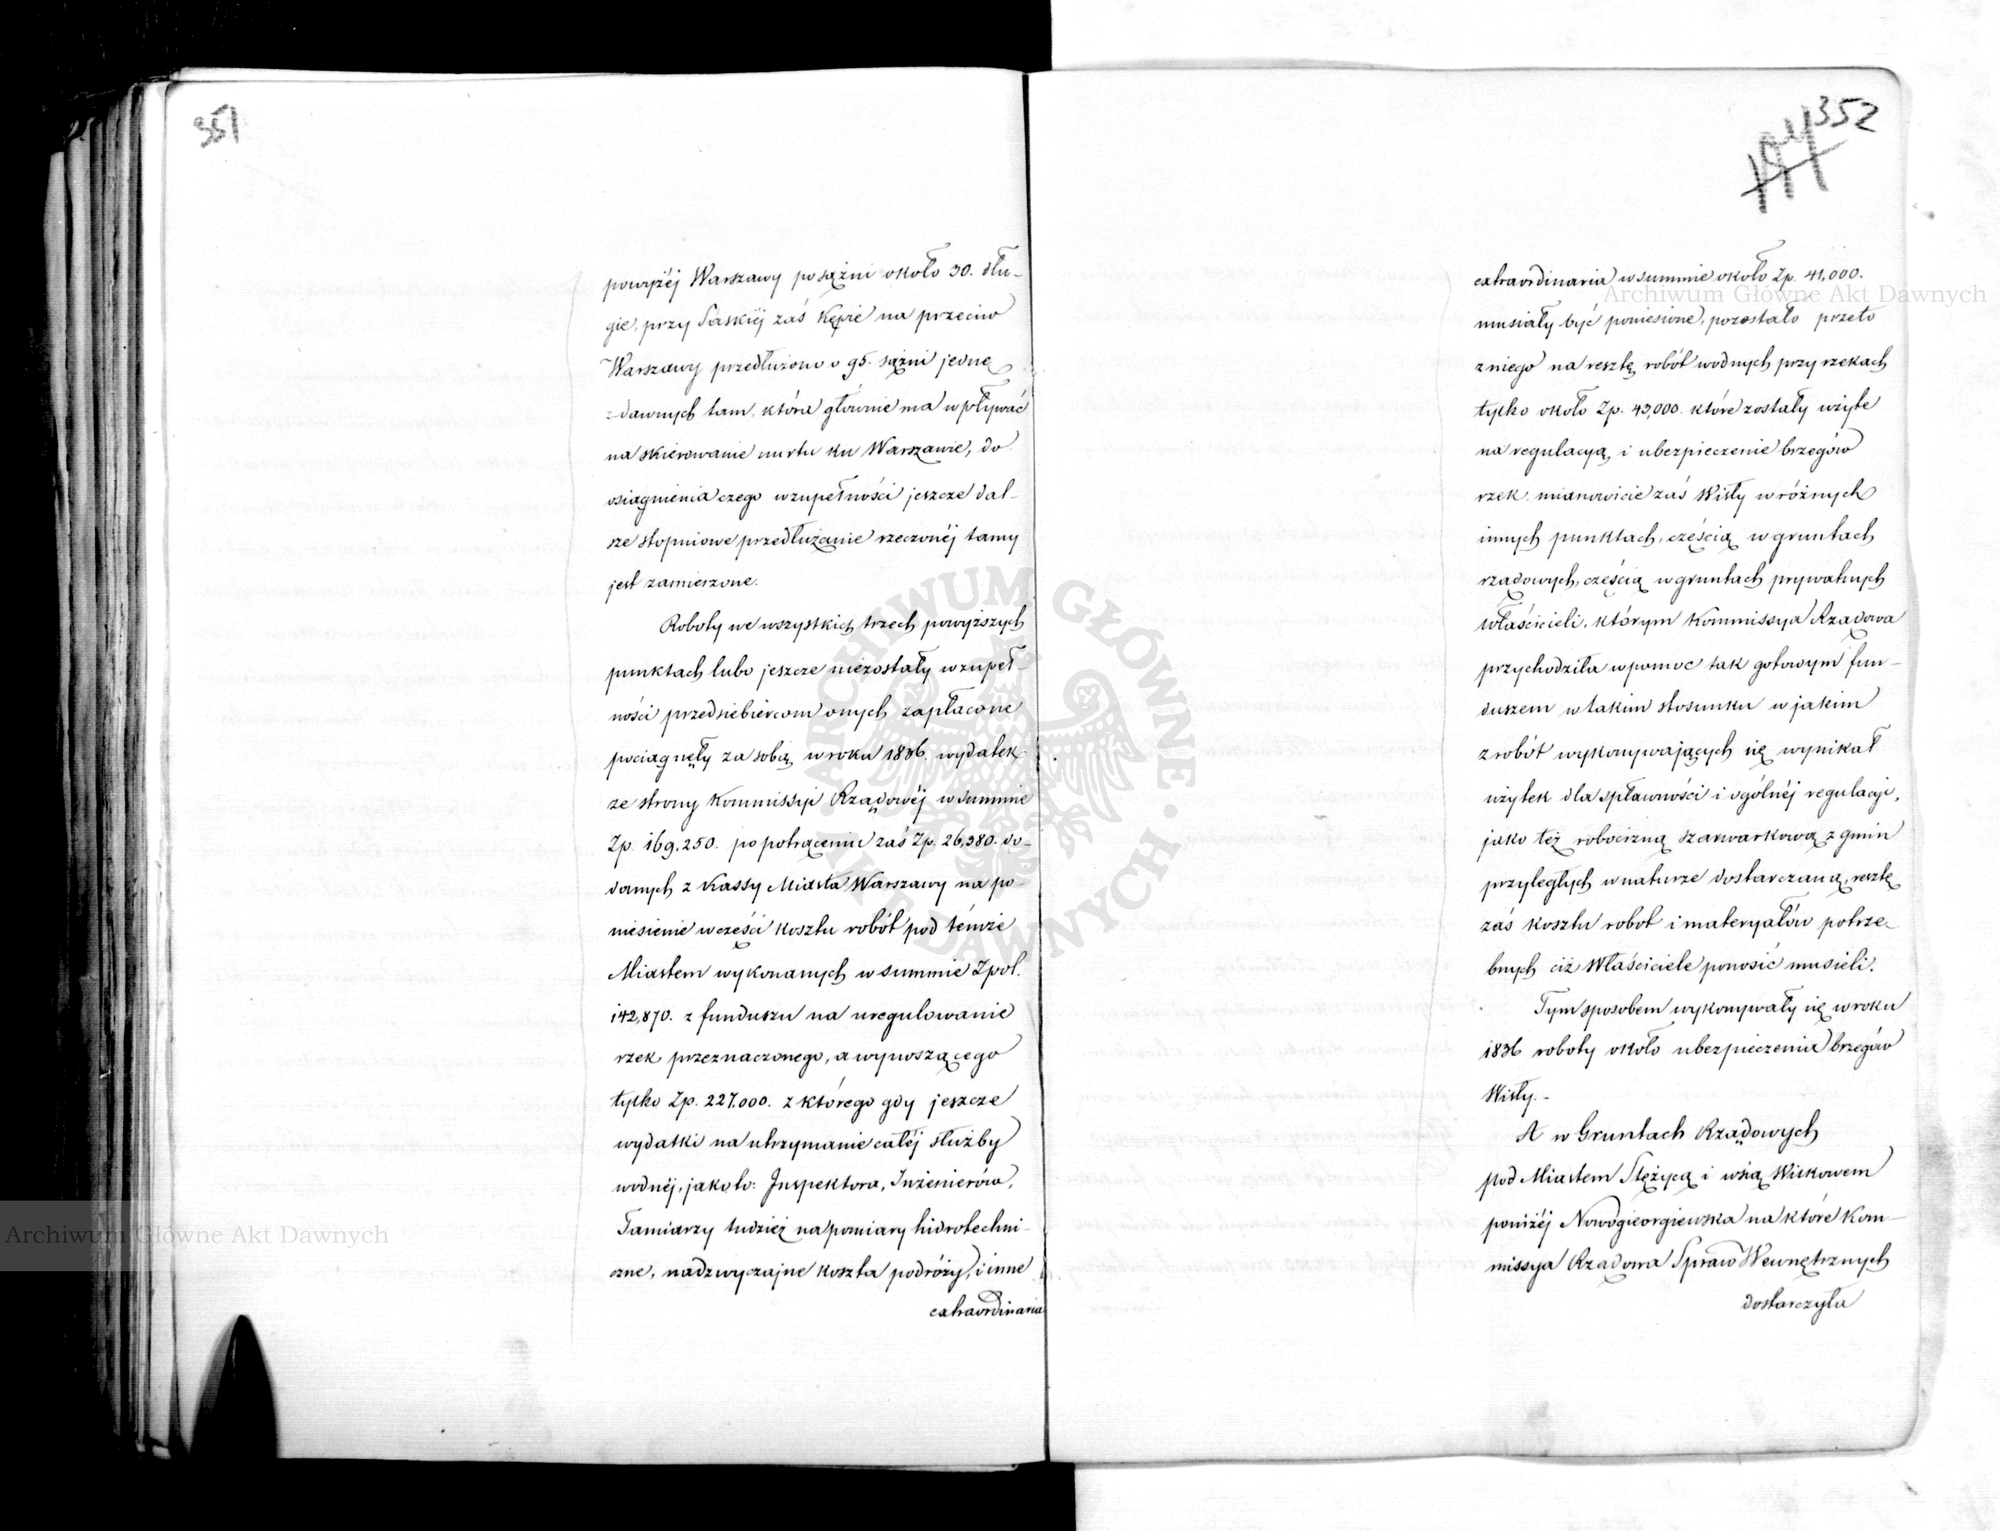 351
powyżéj Warszawy po sążni około 30. dłu-
gie, przy Saskiéj zaś Kępie na przeciw
Warszawy przedłużono o 95. sążni jednę
z dawnych tam, która głównie ma wpływać
na skierowanie nurtu ku Warszawie, do
osiągnienia czego wzupełności jeszcze dal-
sze stopniowe przedłużanie rzeczonéj tamy
jest zamierzone.
Roboty we wszystkich trzech powyższych
punktach lubo jeszcze niezostały wzupeł-
ności przedsiebiercom onych zapłacone
pociągnęły za sobią w roku 1836. wydatek
ze strony Kommissyi Rządowéj w summie
Zp. 169,250. po potrąceniu zaś Zp. 26,380. do-
danych z Kassy Miasta Warszawy na po-
niesienie w części kosztu robót pod témże
Miastem wykonanych w summie Zpol.
142,870. z funduszu na uregulowanie
rzek przeznaczonego, a wynoszącego
tylko Zp. 227,000. z którego gdy jeszcze
wydatki na utrzymanie całéj służby
wodnéj, jako to: Inspektora, Inżenierów,
Tamiarzy tudzież na pomiary hidrotechni-
czne, nadzwyczajne koszta podróży, i inne
extraordinaria
352
194
extraordinaria w summie około Zp. 41,000.
musiały być poniesione, pozostało przeto
z niego na resztę robót wodnych przy rzekach
tylko około Zp. 43,000. które zostały użyte
na regulacyą i ubezpieczenie brzegów
rzek mianowicie zaś Wisły w różnych
innych punktach, częścią w gruntach
rządowych, częścią w gruntach prywatnych
Właścicieli, którym Kommissya Rządowa
przychodziła w pomoc tak gotowym fun-
duszem w takim stosunku w jakim
z robót wykonywających się wynikał
użytek dla spławności i ogólnéj regulacyi,
jako téż robocizną szarwarkową z gmin
przyległych w naturze dostarczaną, resztę
zaś kosztu robot i materyałów potrze-
bnych ciż Właściciele ponosić musieli.
Tym sposobem wykonywały się w roku
1836 roboty około ubezpieczenia brzegów
Wisły.-
A w Gruntach Rządowych
pod Miastem Stężycą i wsią Witkowem
poniżéj Nowogieorgiewska na które Kom-
missya Rządowa Spraw Wewnętrznych
dostarczyła
Archiwum Główne Akt Dawnych
Archiwum Główne Akt Dawnych
· ARCHIWUM GŁÓWNE · AKT DAWNYCH